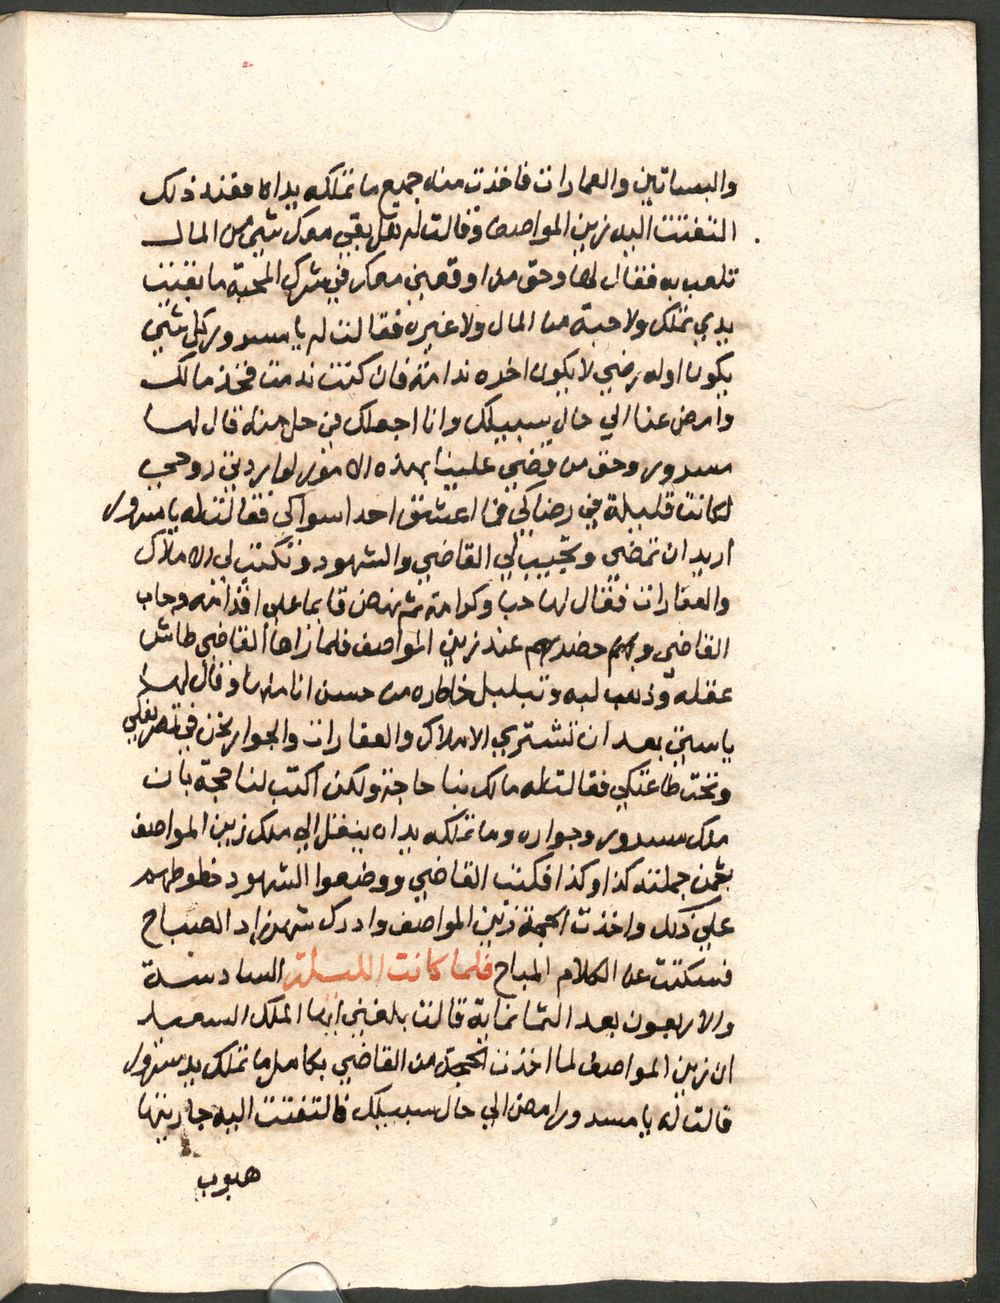 والبساتين والعمارات فاخذت منه جميع ما تملكه يداه فعند ذلك
التفتت اليه زين المواصف وقالت له هل بقي معك شي من المال
تلعب به فقال لها وحق من اوقعني معكي في شرك المحبة ما بقيت
يدي تملك ولا حبة من المال ولا غيره فقالت له يا مسرور كل شي
يكون اوله رضي لا يكون اخره ندامة فان كنت ندمت فخذ مالك
وامض عنا الي حال سبيلك وانا اجعلك في حل منه قال لها
مسرور وحق من قضي علينا بهذه الامور لو اردتي روحي
لكانت قليلة في رضاكي فما اعشق احدا سواكي فقالت له يا مسرور
اريد ان تمضي وتجيب لي القاضي والشهود وتكتب لي الاملاك
والعقارات فقال لها حبا وكرامة ثم نهض قايما علي اقدامه وجاب
القاضي وبهم حضرهم عند زين المواصف فلما راها القاضي طاش
عقله وذهب لبه وتبلبل خاطره من حسن اناملها وقال لها
ياستي بعد ان تشتري الاملاك والعقارات والجوار نحن في تصريفكي
وتحت طاعتكي فقالت له مالك بنا حاجة ولكن اكتب لنا حجة بان
ملك مسرور وجواره وما تملكه يداه ينقل الي ملك زين المواصف
بثمن جملته كذا وكذا فكتب القاضي ووضعوا الشهود خطوطهم
علي ذلك واخذت الحجة زين المواصف وادرك شهرزاد الصباح
فسكتت عن الكلام المباح فلما كانت الليلة السادسة
والاربعون بعد الثمانماية قالت بلغني ايها الملك السعيد
ان زين المواصف لما اخذت الحجة من القاضي بكامل ما تملك يد مسرور
قالت له يا مسرور امض الي حال سبيلك فالتفتت اليه جاريتها
هبوب